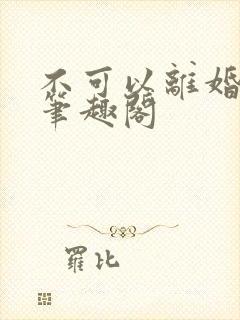 不可以離婚
筆趣閣
羅比